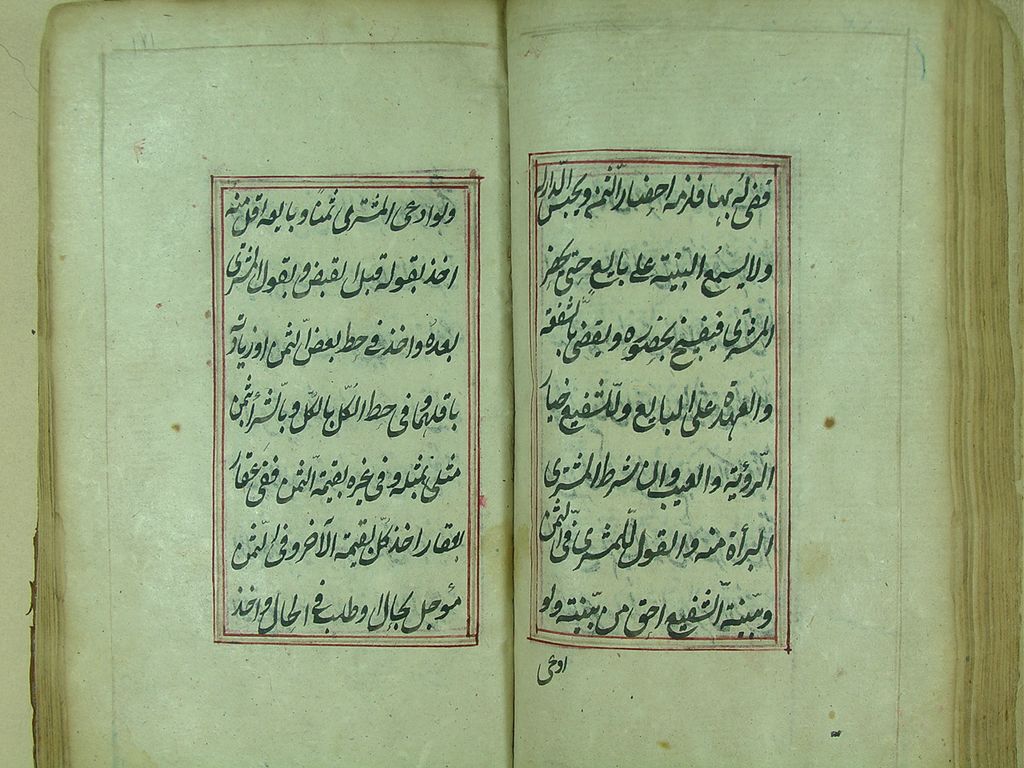 قضى له بها فلزمه احضار الثمن ويحبس الدار له
ولا يسمع البينة على بايع حتى يحضر
المشترى فيفسخ بحضوره ويقضى بالشفعة
والعهدة على البايع وللشفيع خيار
الرؤية والعيب وان شرط المشترى
البرأة منه والقول للمشترى فى الثمن
وبينة الشفيع احق من بينته ولو
ادعى
ولو ادعى المشترى ثمنا وبايعه اقل منه
اخذ بقوله قبل القبض وبقول المشترى
بعده واخذ فى حط بعض الثمن او زيادة
باقلهما وفى حط الكل بالكل وبالشرأ بثمن
مثلى بمثله وفى غيره بقيمة الثمن ففى عقار
بعقار اخذ كل بقيمة الآخر وفى الثمن
مؤجل بحال او طلب فى الحال واخذ